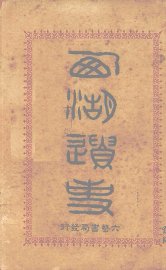 西湖遺事
六藝書局發行